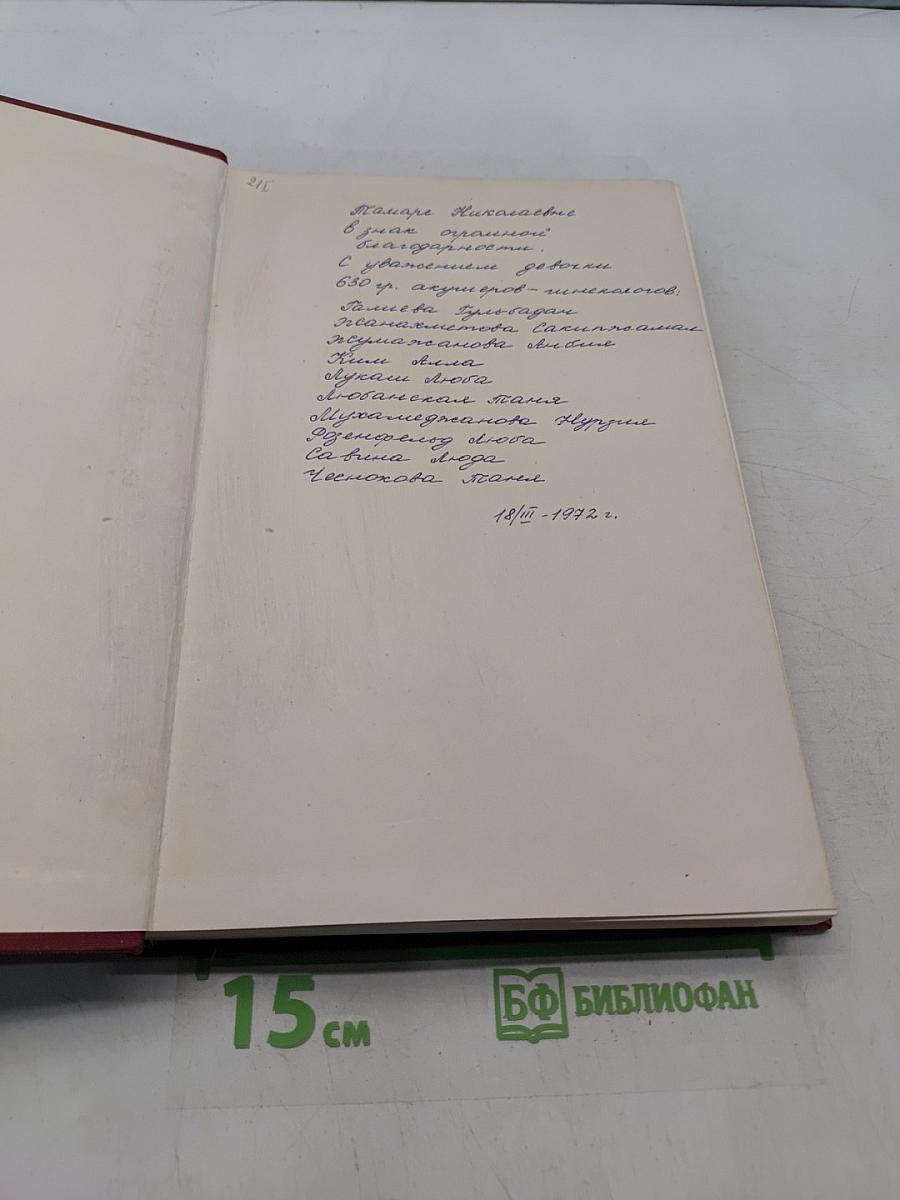 21I
Тамаре Николаевне
в знак огромной
благодарности.
С уважением девочки
630 гр. акушеров-гинекологов:
Галиева Гульбадан
Жанахметова Сакипжамал
Жумажанова Анбия
Ким Алла
Лукаш Люба
Любанская Таня
Мухамеджанова Нурзия
Розенфельд Люба
Савина Люда
Чеснокова Таня
18/III-1972 г.
15 см
БФ БИБЛИОФАН